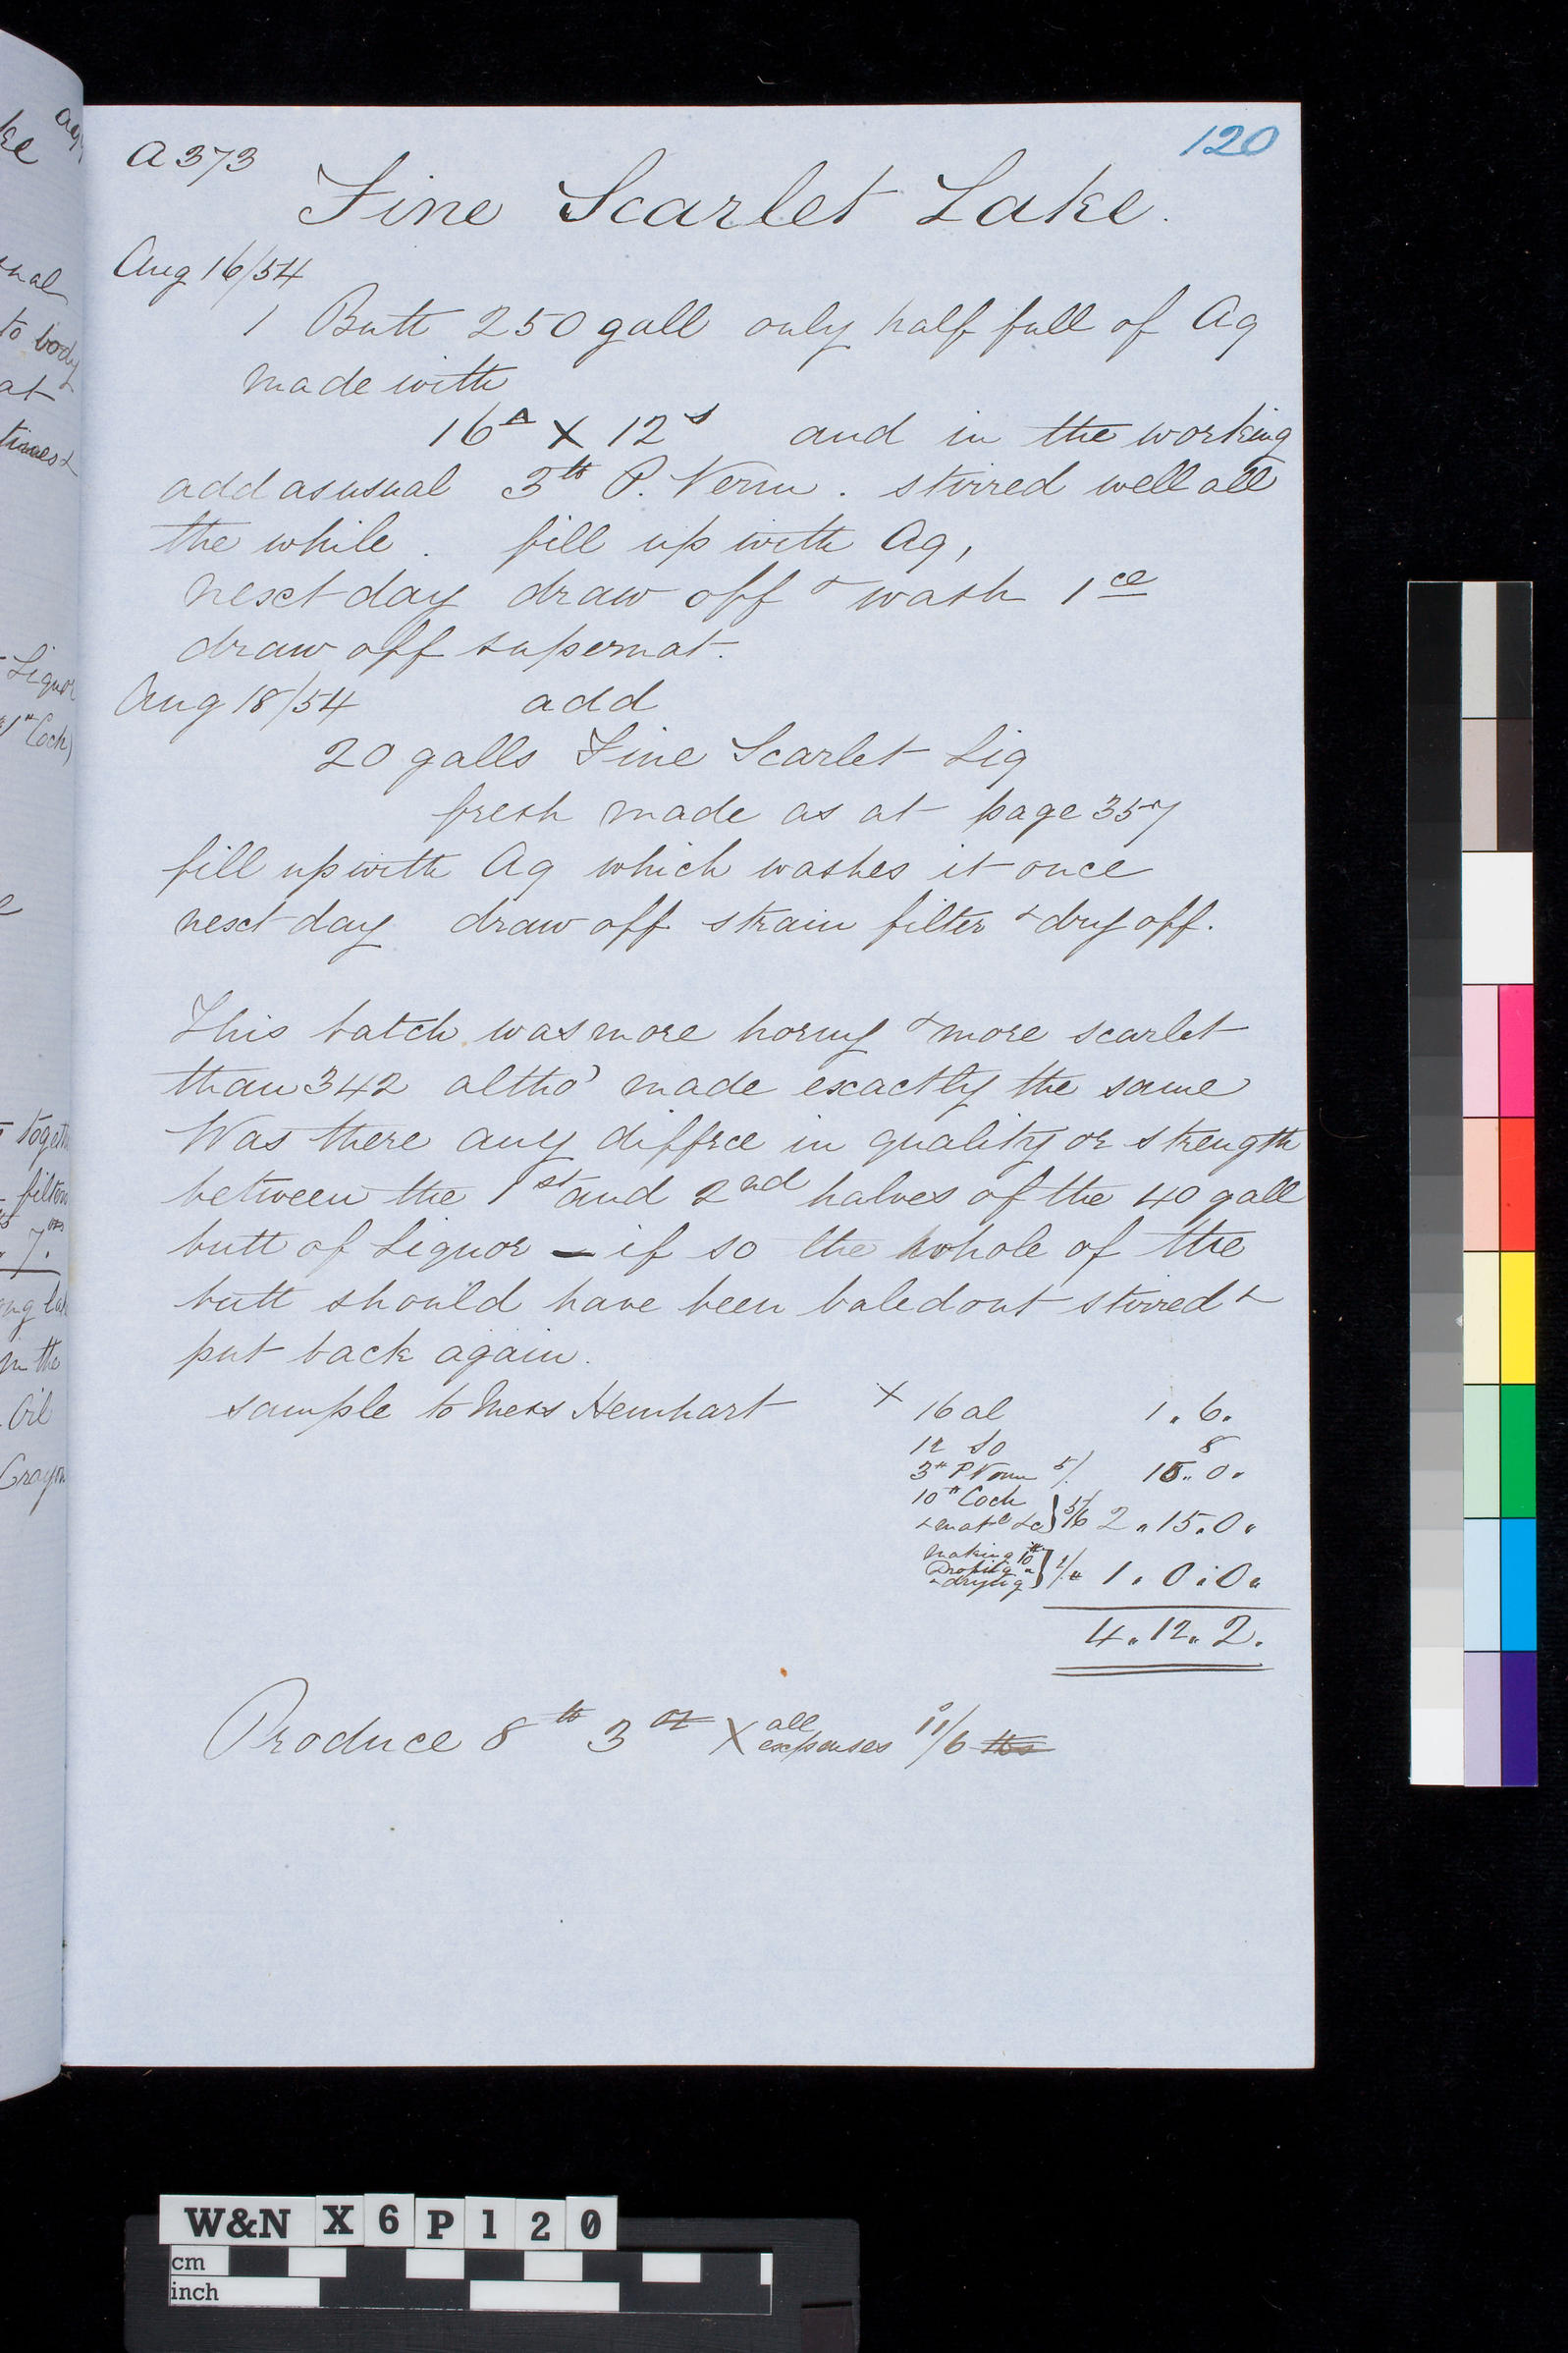 A373
120
Fine Scarlet Lake.
Aug 16/54
1 Butt 250 gall only half full of Aq
made with
16 A X 12 s and in the working
add as usual 3 lb P. Verm. stirred well all
the while. fill up with Aq,
next day draw off & wash 1ce
draw off supernat.
Aug 18/54 add
20 galls Fine Scarlet Liq
fresh made as at page 357
fill up with Aq which washes it once
next day draw off strain filter & dry off.
This batch was more horny & more scarlet
than 342 altho' made exactly the same
Was there any diffrce in quality or strength
between the 1st and 2nd halves of the 40 gall
butt of Liquor - if so the whole of the
butt should have been baled out stirred &
put back again.
sample to Mess
X 16 al 1.6.
12 So 8
3 lb P Verm 5/. 15.0.
10 lb Coch
& matl &c } 5/6 2.15.0.
making 10 lb
& drying } 1.0.0.
4.12.2.
Produce 8 lb 3 oz X all expenses 11/6 lbs
ke
nal
to body
at
times &
Liquor
Coch)
filter
in the
Oil
W&N X6P120
cm
inch